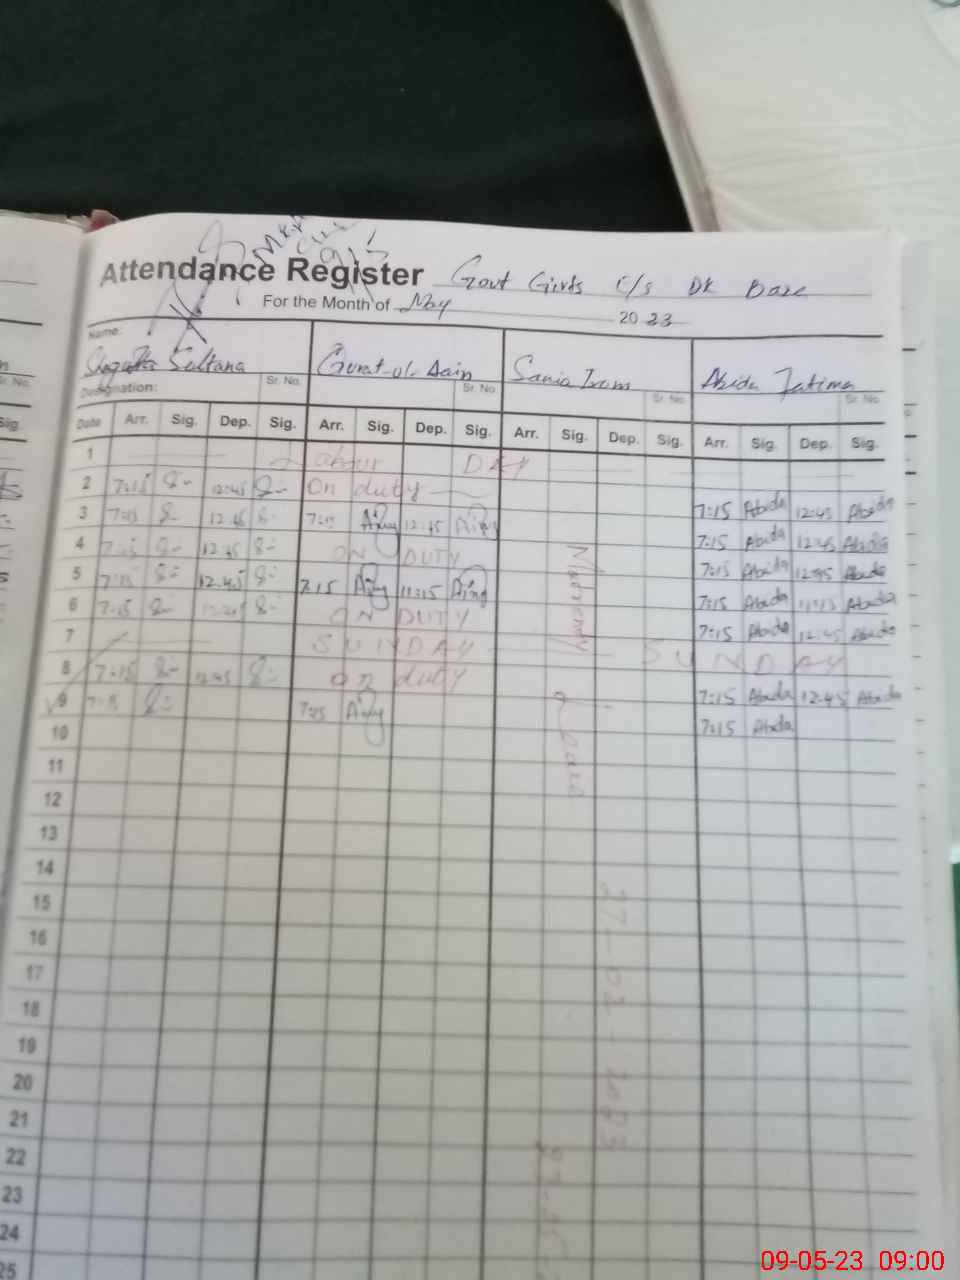 Attendance Register Govt Girls E/s DK Baze
For the Month of May 2023
Name: Sultana Qurat-ul-Aain Sania Iram Abida Fatima
Designation: Sr. No. Sr. No. Sr. No. Sr. No
Date Arr. Sig. Dep. Sig. Arr. Sig. Dep. Sig. Arr. Sig. Dep. Sig. Arr. Sig. Dep. Sig.
1 Labour DAY
2 7:15 12:45 On duty 7:15 Abida 12:45 Abida
3 7:15 12:45 7:15 12:45 7:15 Abida 12:45 Abida
4 7:15 12:45 ON DUTY 7:15 Abida 12:45 Abida
5 7:15 12:45 7:15 11:15 7:15 Abida 11:15 Abida
6 7:15 12:45 ON DUTY 7:15 Abida 12:45 Abida
7 SUNDAY SUNDAY
8 7:15 12:45 on duty 7:15 Abida 12:45 Abida
9 7:15 7:15 7:15 Abida
10
11
12
13
14
15
16
17
18
19
20
21
22
23
24
25
Maternity Leave
09-05-23 09:00